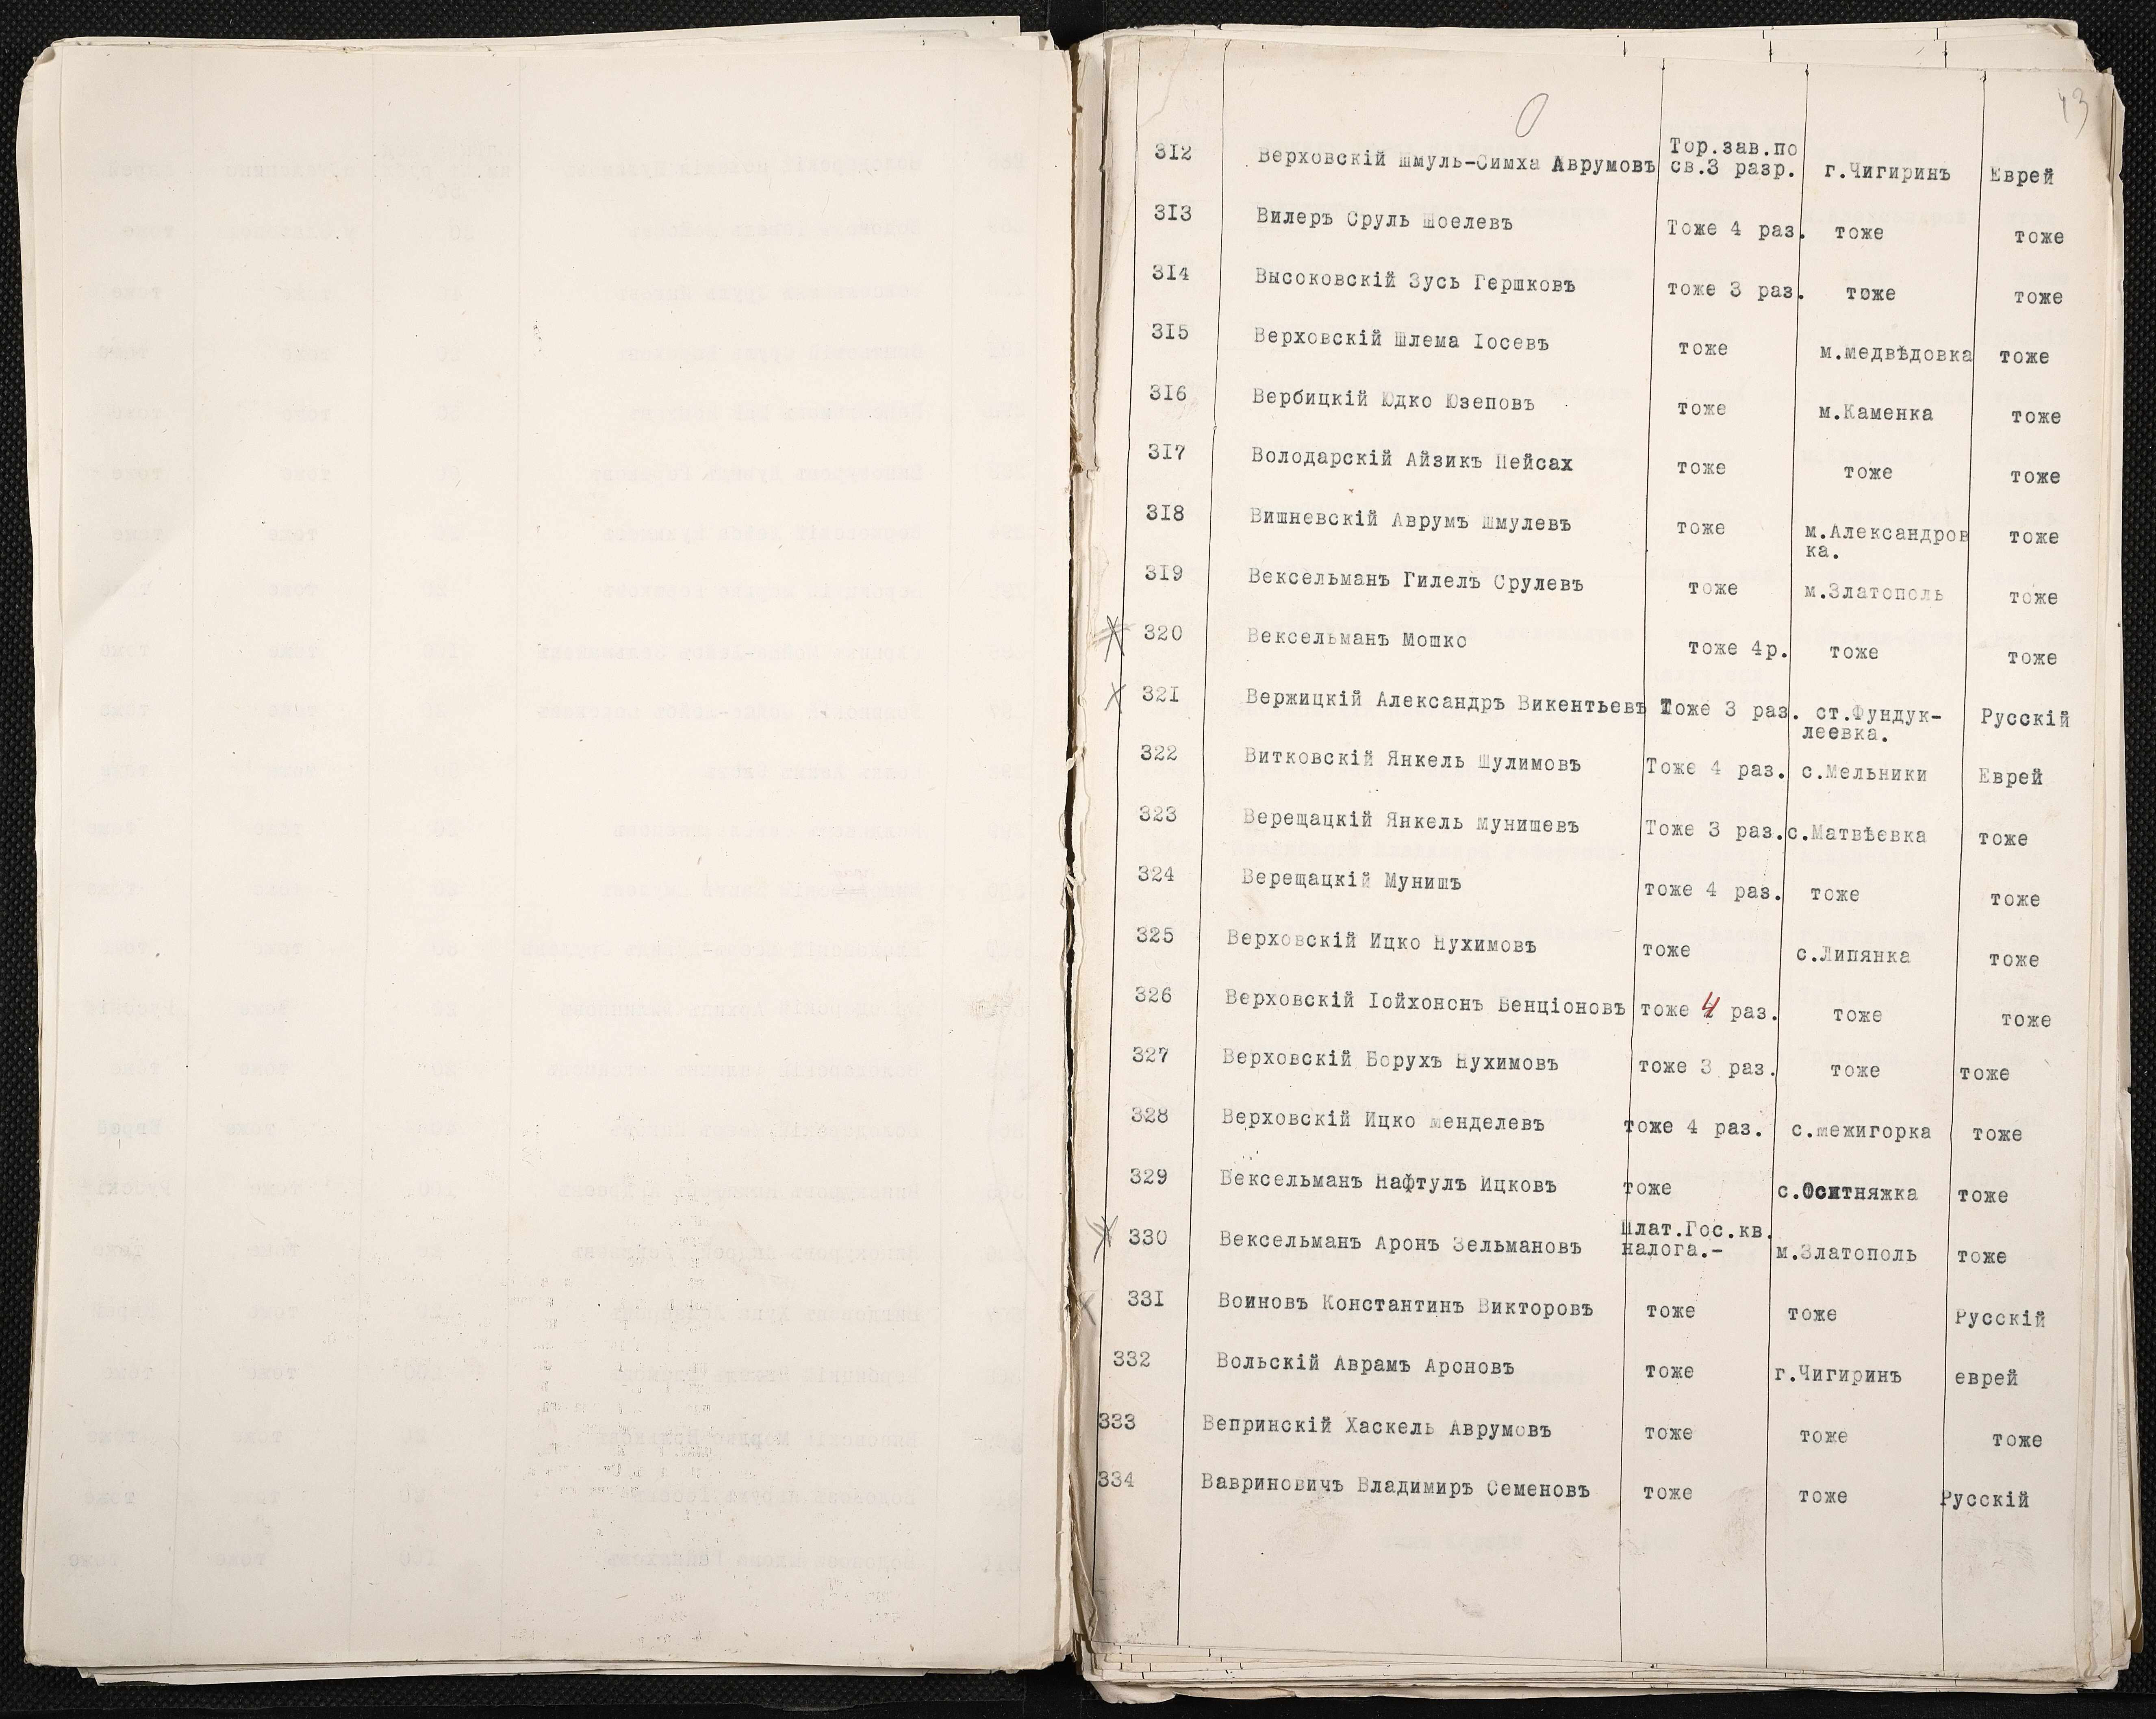 43
312 Верховскій Шмуль-Симха Аврумовъ Тор.зав.по св.3 разр. г.Чигиринъ Еврей
313 Вилеръ Сруль Шоелевъ Тоже 4 раз. тоже тоже
314 Высоковскій Зусь Гершковъ тоже 3 раз. тоже тоже
315 Верховскій Шлема Іосевъ тоже м.медвѣдовка тоже
316 Вербицкій Юдко Юзеповъ тоже м.Каменка тоже
317 Володарскій Айзикъ Пейсах тоже тоже тоже
318 Вишневскій Аврумъ Шмулевъ тоже м.Александров тоже
ка.
319 Вексельманъ Гилелъ Срулевъ тоже м.Златополь тоже
320 Вексельманъ Мошко тоже 4р. тоже тоже
321 Вержицкій Александръ Викентьевъ Тоже 3 раз. ст.Фундук- Русскій
леевка.
322 Витковскій Янкель Шулимовъ Тоже 4 раз. с.Мельники Еврей
323 Верещацкій Янкель Мунишевъ Тоже 3 раз. с.Матвѣевка тоже
324 Верещацкій Мунишъ тоже 4 раз. тоже тоже
325 Верховскій Ицко Нухимовъ тоже с.Липянка тоже
326 Верховскій Іойхононъ Бенціоновъ тоже 4 раз. тоже тоже
327 Верховскій Борухъ Нухимовъ тоже 3 раз. тоже тоже
328 Верховскій Ицко Менделевъ тоже 4 раз. с.межигорка тоже
329 Вексельманъ Нафтулъ Ицковъ тоже с.Оситняжка тоже
330 Вексельманъ Аронъ Зельмановъ Плат.Гос.кв. налога.- м.Златополь тоже
331 Воиновъ Константинъ Викторовъ тоже тоже Русскій
332 Вольскій Аврамъ Ароновъ тоже г.Чигиринъ еврей
333 Вепринскій Хаскель Аврумовъ тоже тоже тоже
334 Вавриновичъ Владимиръ Семеновъ тоже тоже Русскій